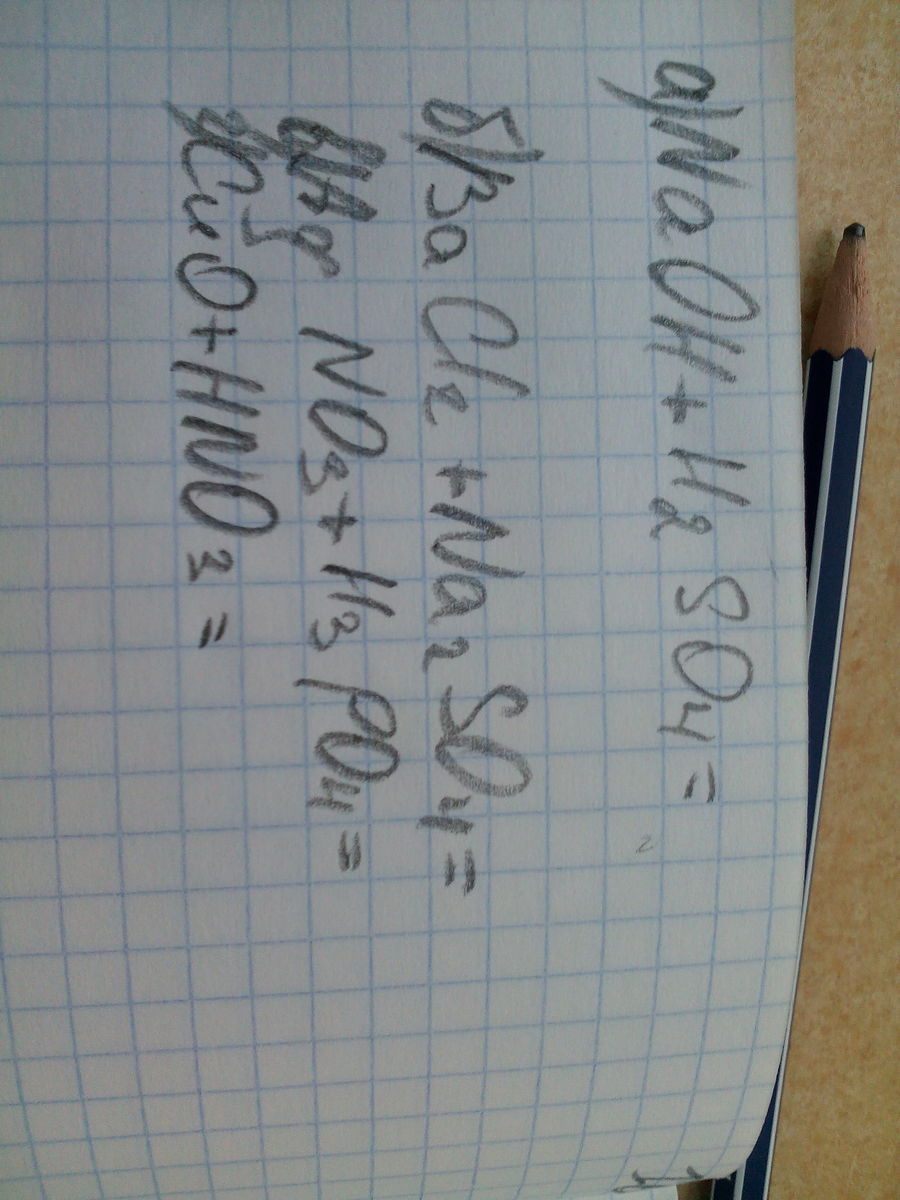 а) NaOH + H₂SO₄ =
б) BaCl₂ + Na₂SO₄ =
в) Ag NO₃ + H₃PO₄ =
г) CuO + HNO₃ =